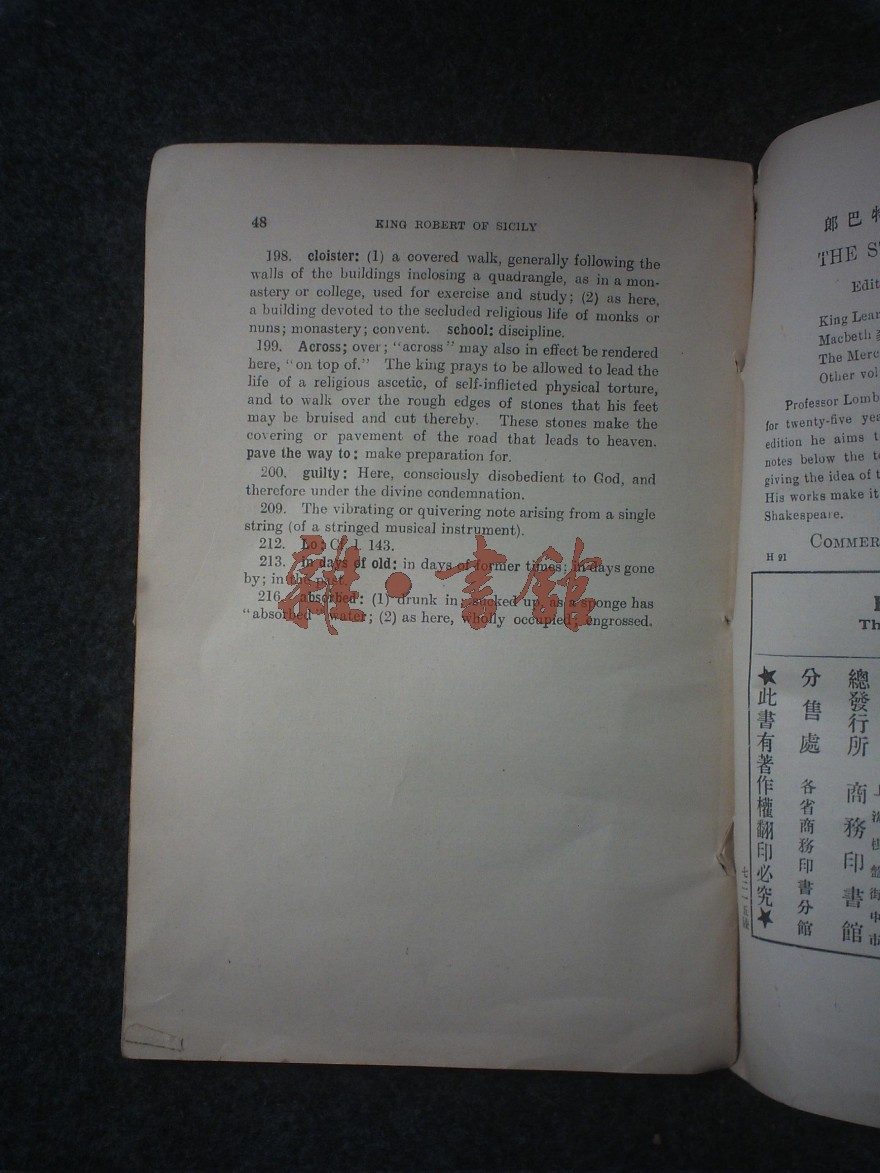 48 KING ROBERT OF SICILY
198. cloister: (1) a covered walk, generally following the
walls of the buildings inclosing a quadrangle, as in a mon-
astery or college, used for exercise and study; (2) as here,
a building devoted to the secluded religious life of monks or
nuns; monastery; convent. school: discipline.
199. Across; over; "across" may also in effect be rendered
here, "on top of." The king prays to be allowed to lead the
life of a religious ascetic, of self-inflicted physical torture,
and to walk over the rough edges of stones that his feet
may be bruised and cut thereby. These stones make the
covering or pavement of the road that leads to heaven.
pave the way to: make preparation for.
200. guilty: Here, consciously disobedient to God, and
therefore under the divine condemnation.
209. The vibrating or quivering note arising from a single
string (of a stringed musical instrument).
212. Lo: Cf. l. 143.
213. in days of old: in days of former times; in days gone
by; in the past.
216. absorbed: (1) drunk in; sucked up, as a sponge has
"absorbed" water; (2) as here, wholly occupied; engrossed.
雜·書館
郎巴特
THE
Edit
King Lear
Macbeth
The Merc
Other vol
Professor Lomb
for twenty-five yea
edition he aims t
notes below the te
giving the idea of t
His works make it
Shakespeare.
COMMER
H 91
Th
總發行所 商務印書館
分售處 各省商務印書分館
★此書有著作權翻印必究★